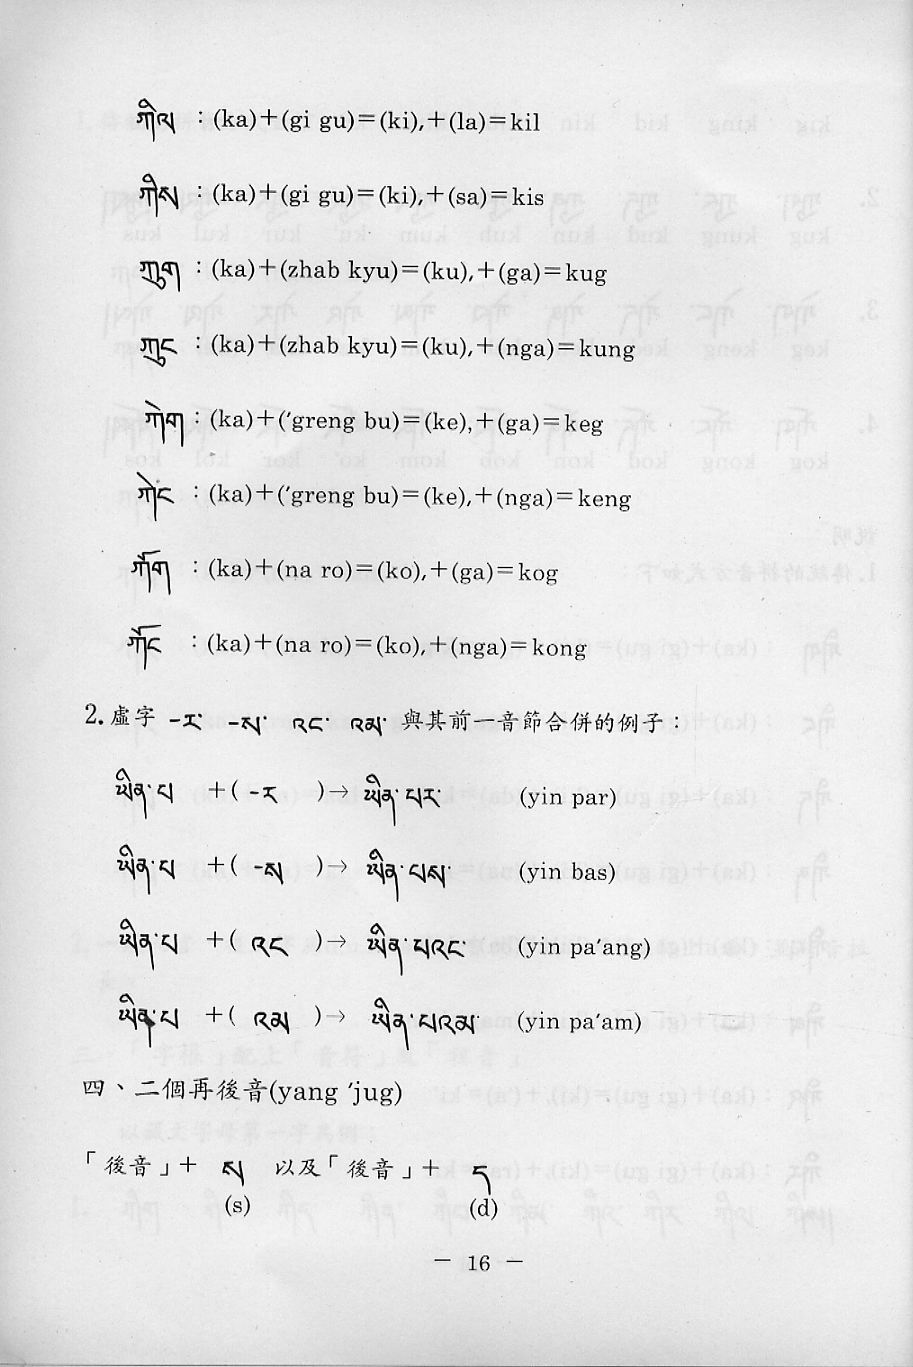 ཀིལ : (ka)+(gi gu)=(ki),+(la)=kil
ཀིས : (ka)+(gi gu)=(ki),+(sa)=kis
ཀུག : (ka)+(zhab kyu)=(ku),+(ga)=kug
ཀུང : (ka)+(zhab kyu)=(ku),+(nga)=kung
ཀེག : (ka)+('greng bu)=(ke),+(ga)=keg
ཀེང : (ka)+('greng bu)=(ke),+(nga)=keng
ཀོག : (ka)+(na ro)=(ko),+(ga)=kog
ཀོང : (ka)+(na ro)=(ko),+(nga)=kong
2. 虛字 -ར་ -ས་ འང་ འམ་ 與其前一音節合併的例子：
ཡིན་པ +( -ར )→ ཡིན་པར་ (yin par)
ཡིན་པ +( -ས )→ ཡིན་པས་ (yin bas)
ཡིན་པ +( འང )→ ཡིན་པའང་ (yin pa'ang)
ཡིན་པ +( འམ )→ ཡིན་པའམ་ (yin pa'am)
四、二個再後音(yang 'jug)
「後音」+ ས 以及「後音」+ ད
(s) (d)
— 16 —